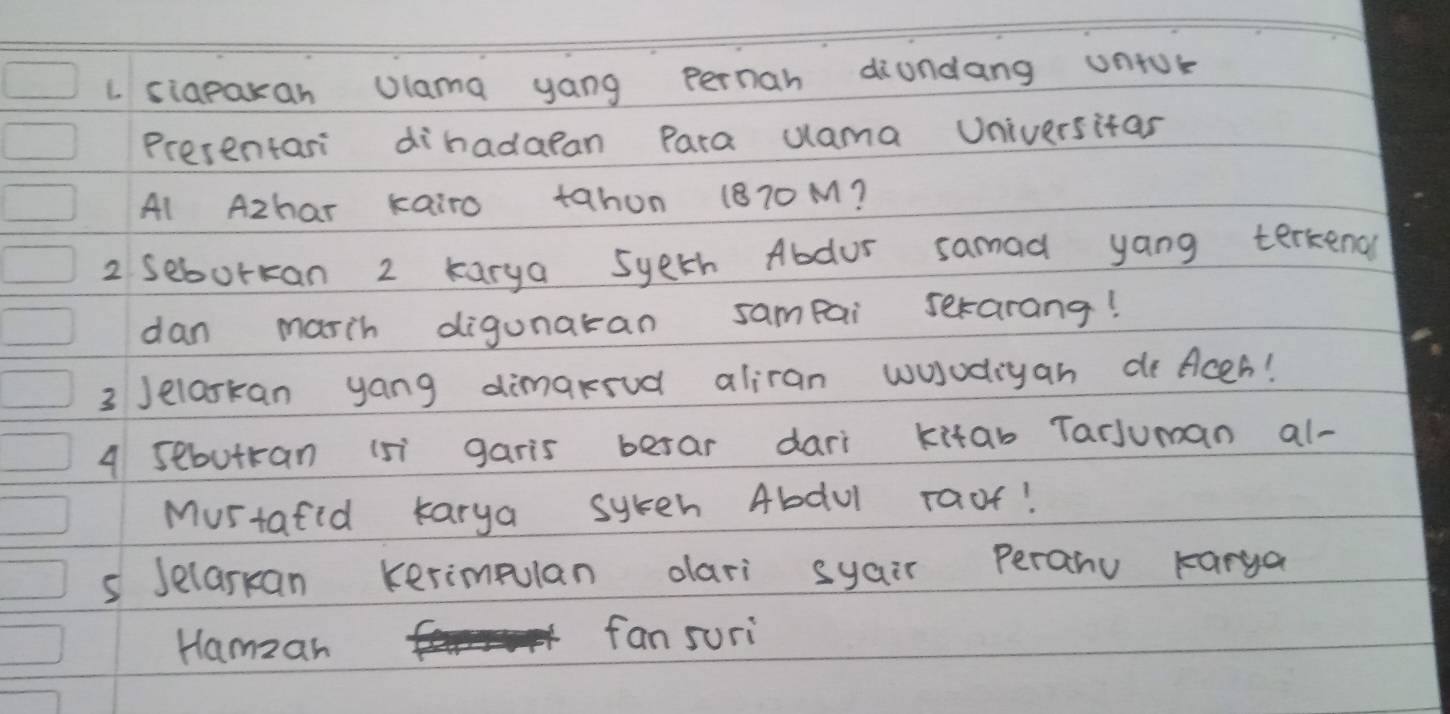 1. siapakah Ulama yang Pernah diundang untuk
Presentasi dihadapan Para ulama Universitas
Al Azhar kairo tahun 1870 M?
2 Sebutkan 2 karya Syekh Abdus samad yang terkenal
dan masih digunakan sampai sekarang!
3 Jelaskan yang dimaksud aliran wujudiyah di Aceh!
4 sebutkan isi garis besar dari kitab Tarjuman al-
Mustafid karya sykeh Abdul raof!
5 Jelaskan kesimpulan dari syair Perahu karya
Hamzah fansuri